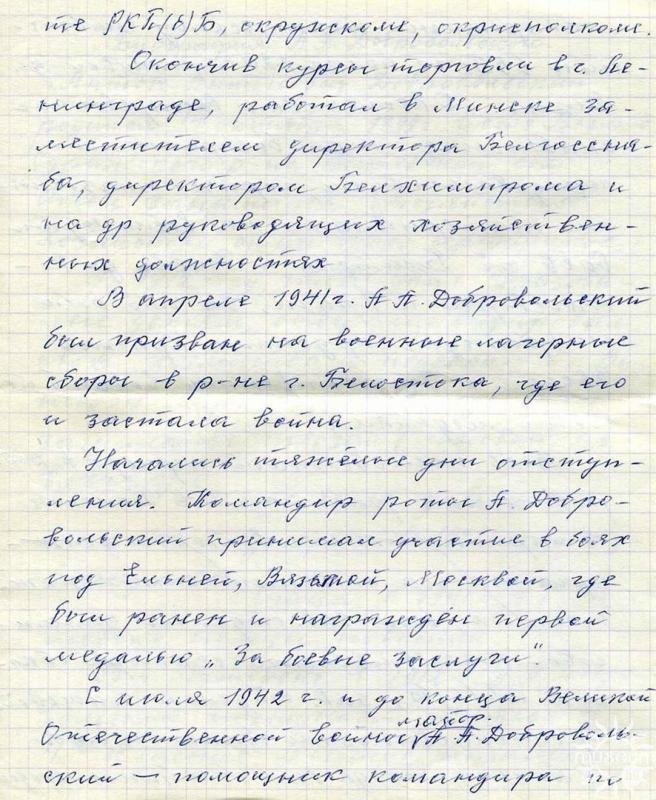 те РКП(б)Б, окружкоме, окрисполкоме.
Окончив курсы торговли в г. Ле-
нинграде, работал в Минске за-
местителем директора Белгосснa-
ба, директором Белхимпрома и
на др. руководящих хозяйствен-
ных должностях
В апреле 1941 г. А А. Добровольский
был призван на военные лагерные
сборы в р-не г. Белостока, где его
и застала война.
Начались тяжёлые дни отступ-
ления. Командир роты А. Добро-
вольский принимал участие в боях
под Ельней, Вязьмой, Москвой, где
был ранен и награждён первой
медалью „За боевые заслуги".
С июля 1942 г. и до конца Великой
майор
Отечественной войны А А. Доброволь-
ский – помощник командира по